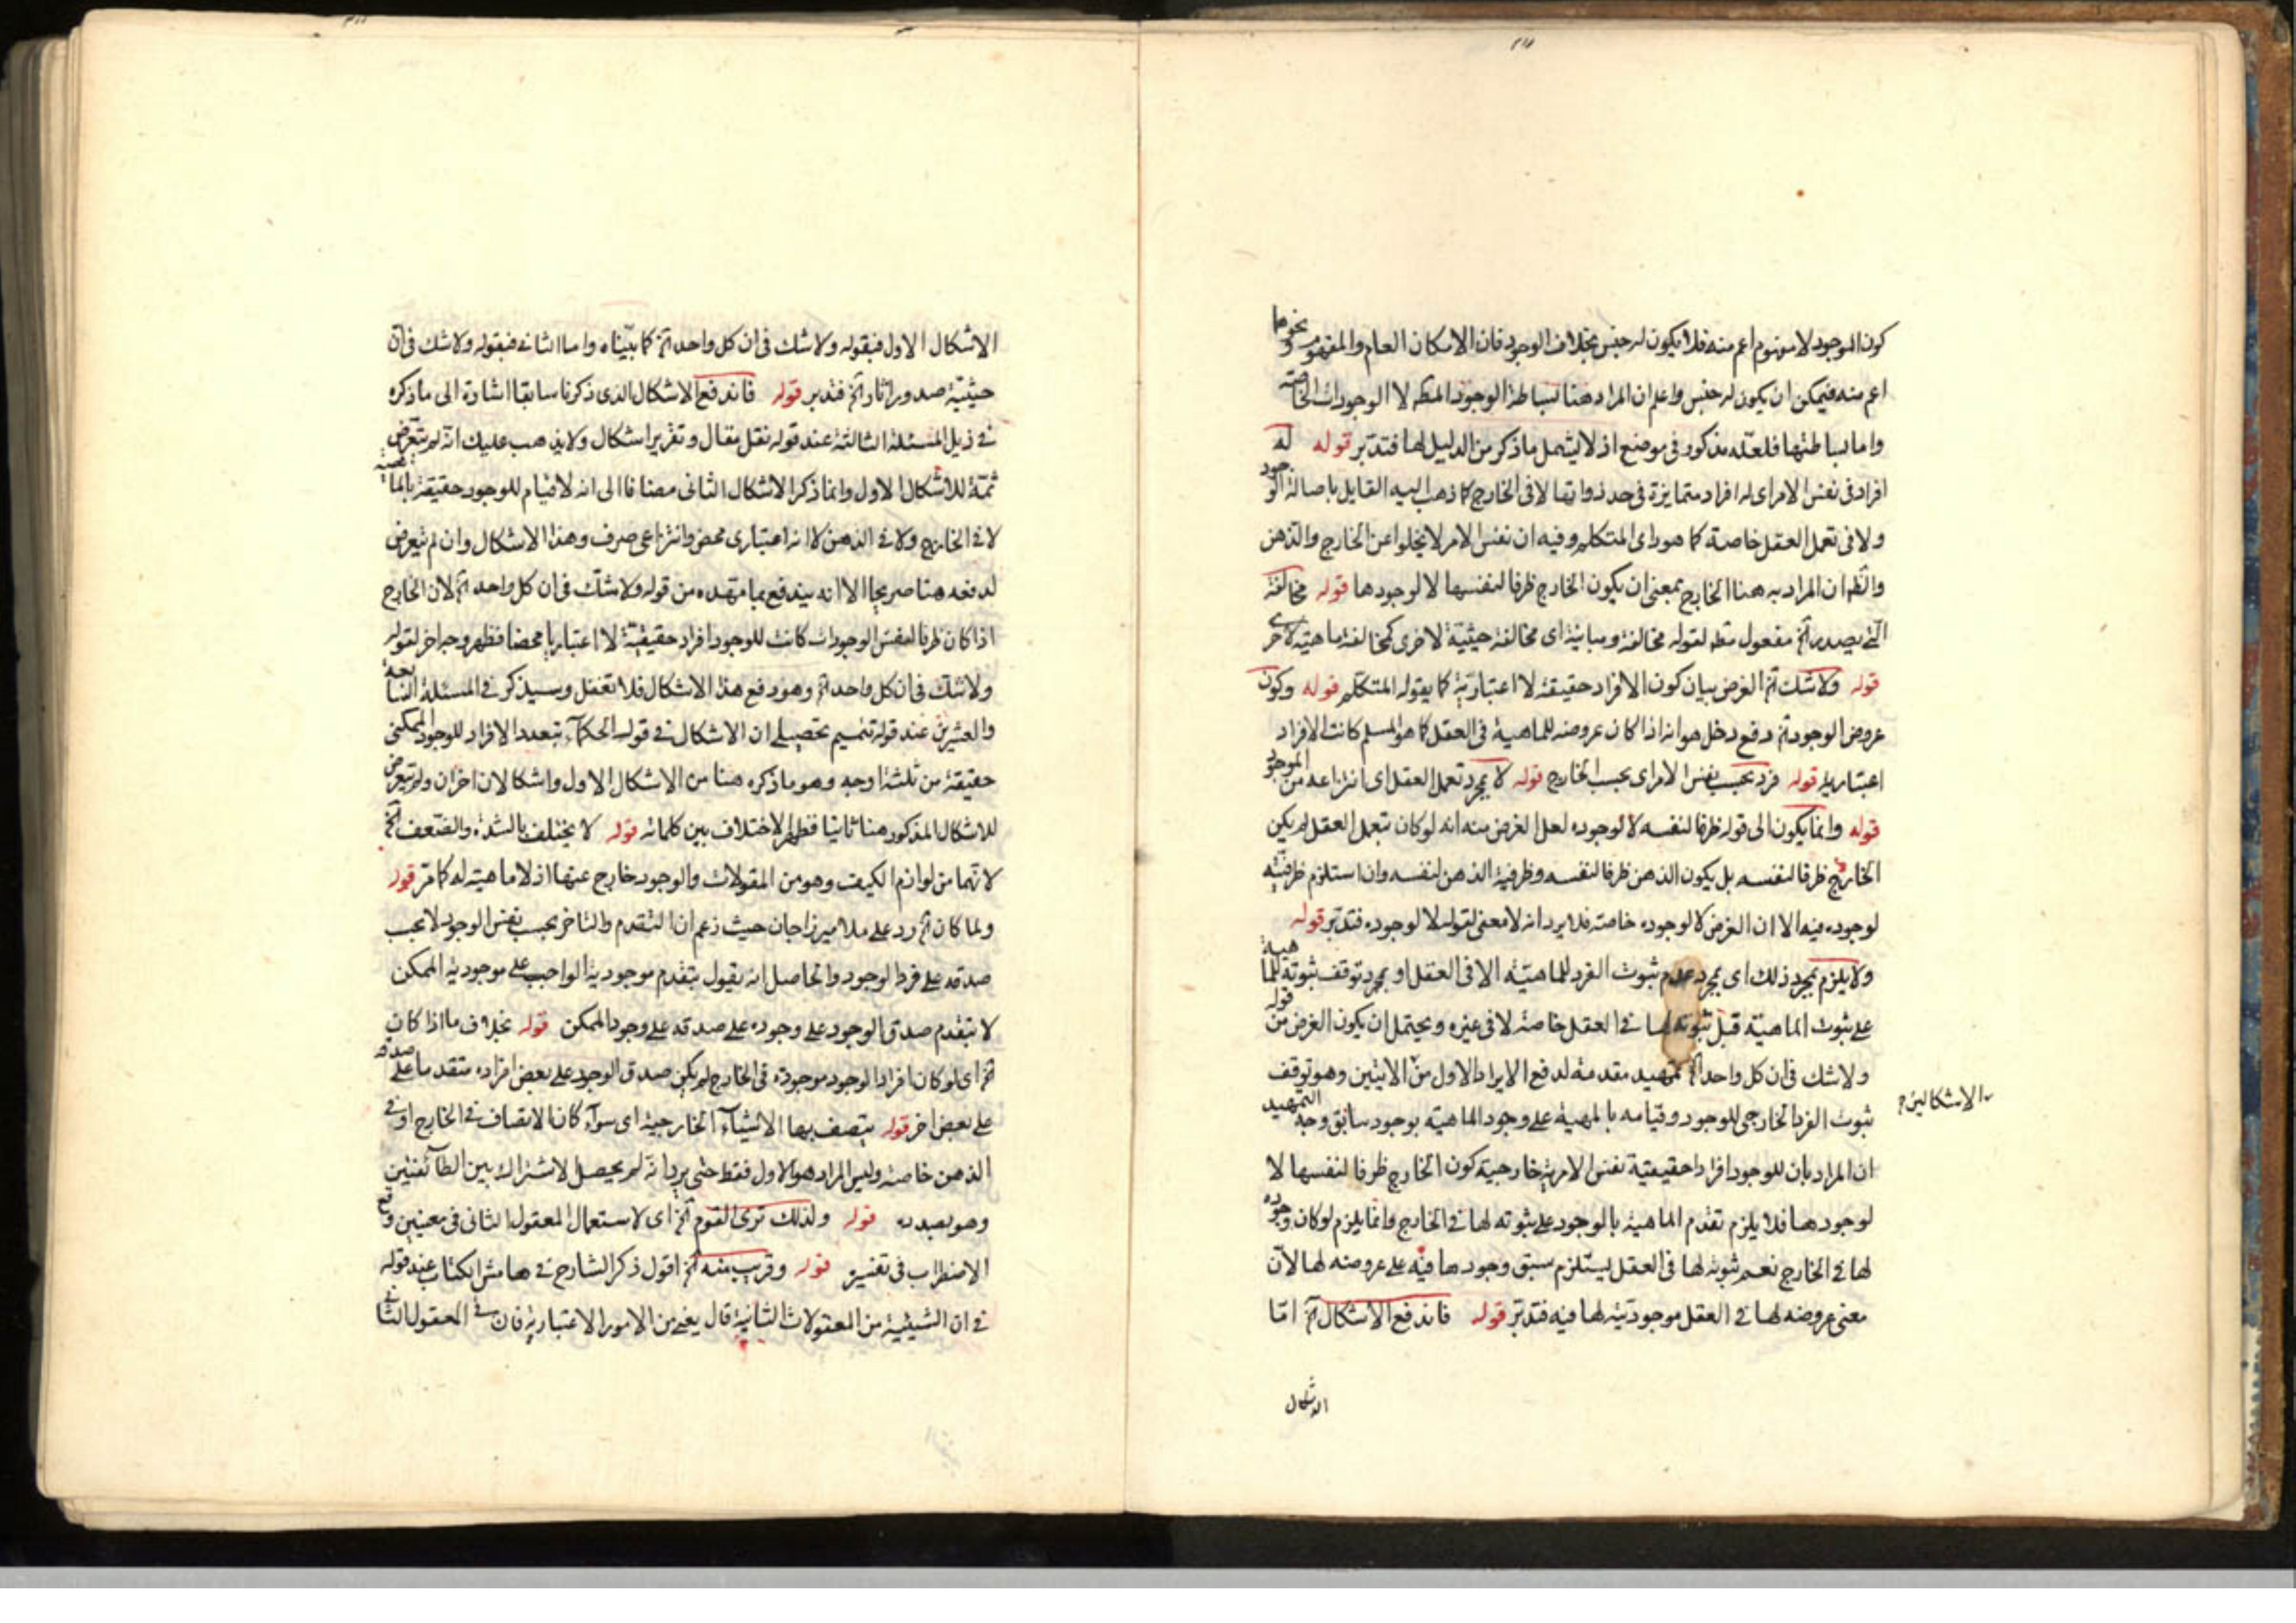 كون الموجود لا مفهوم اعم منه فلا يكون له جنس بخلاف الوجود فان الامكان العام والمفهوم ونحوهما
اعم منه فيمكن ان يكون له جنس واعلم ان المراد هنا بساطة الوجود المطـ لا الوجودات الخاصة
واما بساطتها فلعله مذكور في موضع اذ لا يشمل ما ذكر من الدليل لها فتدبر قوله له
افراد في نفس الامر اى له افراد متمايزة في حد ذواتها لا في الخارج كما ذهب اليه القايل باصالة الوجود
ولا في تعمل العقل خاصة كما هو راى المتكلم وفيه ان نفس الامر لا يخلوا عن الخارج والذهن
والظ ان المراد به هنا الخارج بمعنى ان يكون الخارج ظرفا لنفسها لا لوجودها قوله مخالفة
التى يصدر آه مفعول مط لقوله مخالفة ومباينة اى مخالفة حيثية لاخرى كمخالفة ماهية لاخرى
قوله ولا شك آه الغرض بيان كون الافراد حقيقة لا اعتبارية كما يقوله المتكلم قوله وكون
عروض الوجود آه دفع دخل هو انه اذا كان عروضه للماهية في العقل كما هو المسلم كانت الافراد
اعتبارية قوله فرد بحسب نفس الامر اى بحسب الخارج قوله لا بمجرد تعمل العقل اى انتزاعه من الموجود
قوله وانما يكون الى قوله ظرفا لنفسه لا لوجوده لعل الغرض منه انه لو كان بتعمل العقل لم يكن
الخارج ظرفا لنفسه بل يكون الذهن ظرفا لنفسه وظرفية الذهن لنفسه وان استلزم ظرفيته
لوجوده فيه الا ان الغرض لا لوجوده خاصة فلا يرد انه لا معنى لقوله لا لوجوده فتدبر قوله
ولا يلزم بمجرد ذلك اى بمجرد عدم ثبوت الفرد للماهية الا في العقل او بمجرد توقف ثبوته للماهية
على ثبوت الماهية قبل ثبوته لها في العقل خاصة لا في غيره ويحتمل ان يكون الغرض من قوله
ولا شك في ان كل واحد آه تمهيد مقدمة لدفع الايراد الاول من الاتيين وهو توقف
الاشكالين
ثبوت الفرد الخارجى للوجود وقيامه بالمهية على وجود الماهية بوجود سابق وجه التمهيد
ان المراد بان للوجود افرادا حقيقية نفس الامرية خارجية كون الخارج ظرفا لنفسها لا
لوجودها فلا يلزم تقدم الماهية بالوجود على ثبوته لها في الخارج وانما يلزم لو كان وجوده
لها في الخارج نعم ثبوته لها في العقل يستلزم سبق وجودها فيه على عروضه لها لان
معنى عروضه لها في العقل موجوديته لها فيه فتدبر قوله فاندفع الاشكال آه اما
الاشكال
الاشكال الاول فبقوله ولا شك في ان كل واحد آه كما بيناه واما الثانى فبقوله ولا شك في ان
حيثية صدور اثار آه فتدبر قوله فاندفع الاشكال الذى ذكرنا سابقا اشارة الى ما ذكره
في ذيل المسئلة الثالثة عند قوله نقل مقال وتقرير اشكال ولا يذهب عليك انه لم يتعرض
ثمة للاشكال الاول وانما ذكر الاشكال الثانى مضافا الى انه لا قيام للوجود حقيقة بالماهية
لا في الخارج ولا في الذهن لانه اعتبارى محض وانتزاعى صرف وهذا الاشكال وان لم يتعرض
لدفعه هنا صريحا الا انه يندفع بما مهده من قوله ولا شك في ان كل واحد آه لان الخارج
اذا كان ظرفا لنفس الوجودات كانت للوجود افراد حقيقية لا اعتباريا محضا فظهر وجه اخر لقوله
ولا شك في ان كل واحد آه وهو دفع هذا الاشكال فلا تغفل وسيذكر في المسئلة السابعة
والعشرين عند قوله تتميم تحصيلى ان الاشكال في قوله الحكماء بتعدد الافراد للوجود الممكنى
حقيقة من ثلثة اوجه وهو ما ذكره هنا من الاشكال الاول واشكالان اخران ولم يتعرض
للاشكال المذكور هنا ثانيا فظهر الاختلاف بين كلماته قوله لا يختلف بالشدة والضعف آه
لانهما من لوازم الكيف وهو من المقولات والوجود خارج عنها اذ لا ماهية له كما مر قوله
ولما كان آه رد على ملا ميرزا جان حيث زعم ان التقدم والتاخر بحسب نفس الوجود لا بحسب
صدقه على فرد الوجود والحاصل انه يقول بتقدم موجودية الواجب على موجودية الممكن
لا بتقدم صدق الوجود على وجوده على صدقه على وجود الممكن قوله بخلاف ما اذا كان
آه اى لو كان افراد الوجود موجودة في الخارج لم يكن صدق الوجود على بعض افراده متقدما على صدقه
على بعض اخر قوله يتصف بها الاشياء الخارجية اى سواء كان الاتصاف في الخارج او في
الذهن خاصة وليس المراد هو الاول فقط حتى يرد انه لم يحصل الاشتراك بين الطائفتين
وهو بصدده قوله ولذلك ترى القوم آه اى لاستعمال المعقول الثانى في معنيين وقع
الاضطراب في تفسيره قوله وقريب منه آه اقول ذكر الشارح في هامش الكتاب عند قوله
في ان الشيئية من المعقولات الثانية قال يعنى من الامور الاعتبارية فان في المعقول الثانى